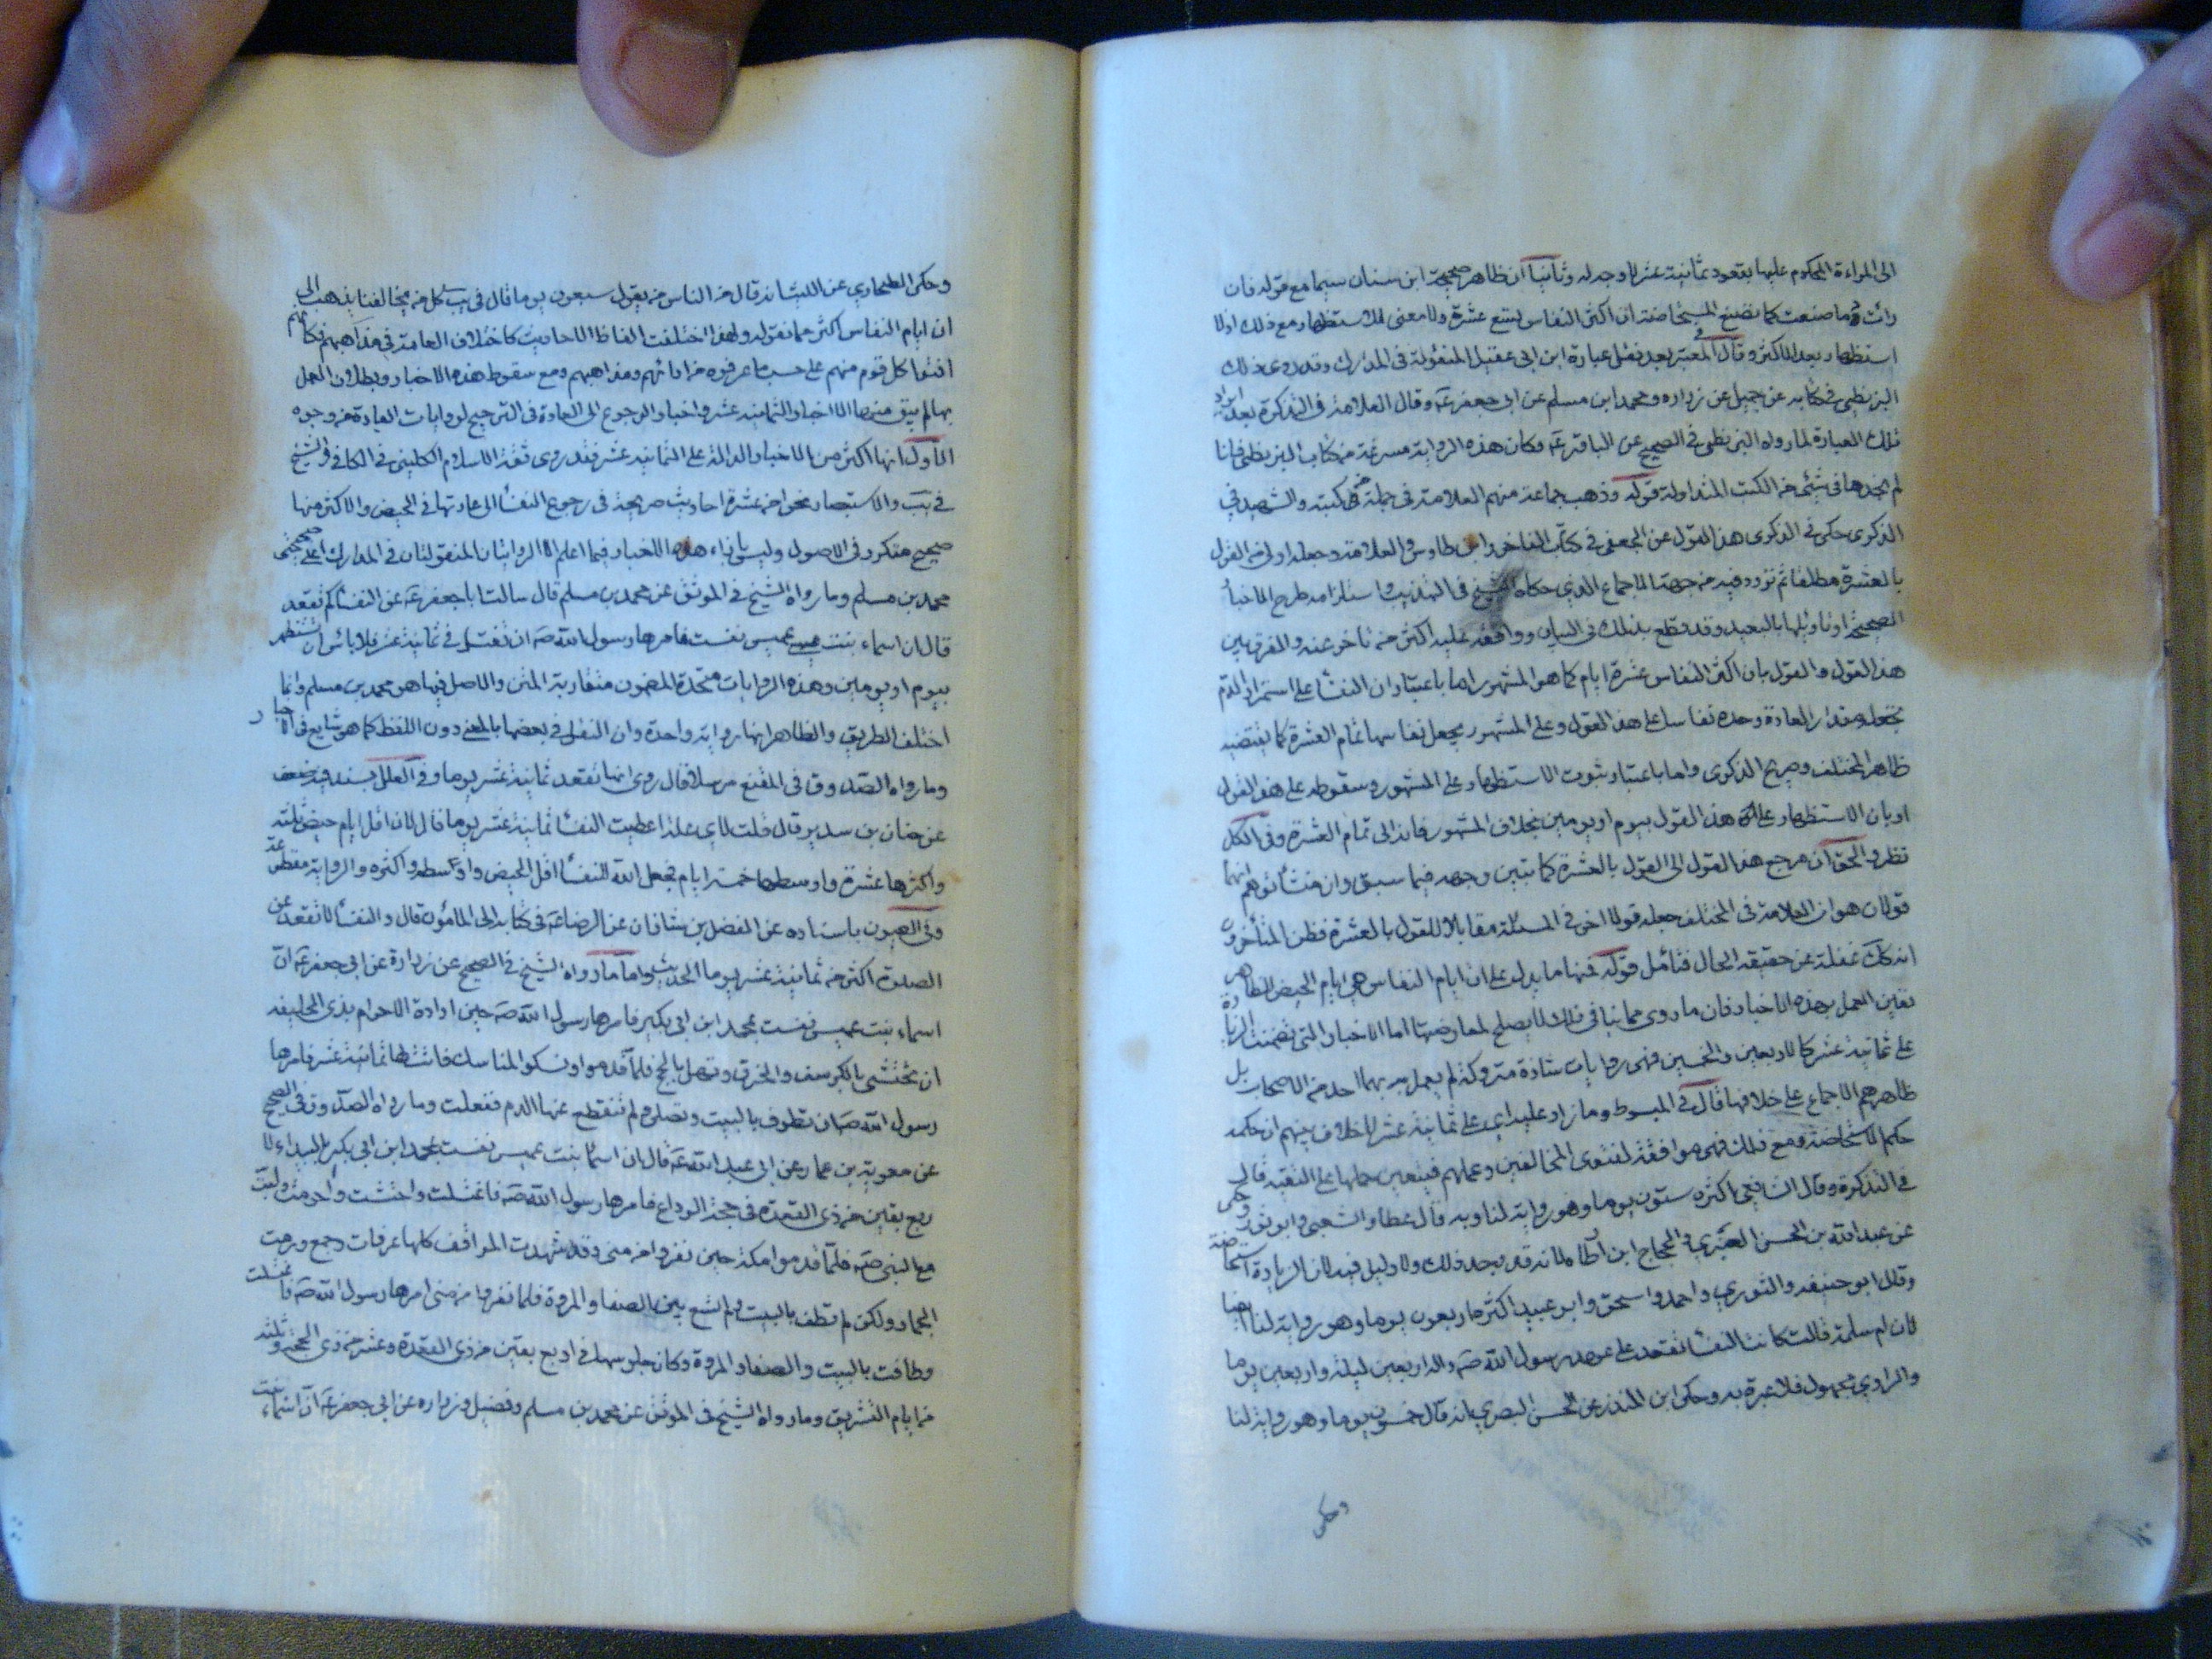 الى المراءة المحكوم عليها بقعود ثمانية عشر لا وجه له وثانيا ان ظاهر صحيحة ابن سنان سيما مع قوله فان
رأت دما صنعت كما تصنع المستحاضة ان اكثر النفاس تسع عشرة ولا معنى للاستظهار مع ذلك اذ لا
استظهار بعد الاكثر وقال في المعتبر بعد نقل عبارة ابن ابي عقيل المنقولة في المدارك وقد روى ذلك
البزنطي في كتابه عن جميل عن زراره ومحمد ابن مسلم عن ابي جعفر عه وقال العلامة في التذكرة بعد ايراد
تلك العبارة لما رواه البزنطي في الصحيح عن الباقر عه وكان هذه الرواية من كتاب البزنطي فانا
لم نجدها في شئ من الكتب المتداولة قوله وذهب جماعة منهم العلامة في جملة من كتبه والشهيد في
الذكرى حكى في الذكرى هذا القول عن الجعفي في كتاب الفاخر وابن طاوس والعلامة وجعله اولى من القول
بالعشرة مطلقا ثم تردد فيه من جهة الاجماع الذي حكاه الشيخ في التهذيب واستلزامه طرح الاخبار
الصحيحة او تاويلها بالبعيد وقد قطع بذلك في البيان ووافقه عليه اكثر من تاخر عنه والفرق بين
هذا القول والقول بان اكثر النفاس عشرة ايام كما هو المشهور اما باعتبار ان النفسا على استمرار الدم
تجعل مقدار العادة وحده نفاسا على هذا القول وعلى المشهور يجعل نفاسها تمام العشرة كما يقتضيه
ظاهر المختلف وصريح الذكرى واما باعتبار ثبوت الاستظهار على المشهور وسقوطه على هذا القول
او بان الاستظهار على هذا القول بيوم او يومين بخلاف المشهور فانه الى تمام العشرة وفي الكل
نظر والحق ان مرجع هذا القول الى القول بالعشرة كما تبين وجهه فيما سبق وان منشأ توهم انهما
قولان هو ان العلامة في المختلف جعله قولا اخر في المسئلة مقابلا للقول بالعشرة فظن المتأخرون
انه كك غفلة عن حقيقة الحال فتأمل قوله فيها ما يدل على ان ايام النفاس هي ايام الحيض الظاهر
تعين العمل بهذه الاخبار فان ما روى مما ينافي ذلك لا يصلح لمعارضتها اما الاخبار التي تضمنت الزيادة
على ثمانية عشر كالاربعين والخمسين فهى روايات شاذة متروكة لم يعمل بها احد من الاصحاب بل
ظاهرهم الاجماع على خلافها قال في المبسوط وما زاد عليه اي على ثمانية عشر لا خلاف بينهم ان حكمه
حكم الاستحاضة ومع ذلك فهى موافقة لفتوى المخالفين وعملهم فيتعين حملها على التقية قال
في التذكرة وقال الشافعي اكثره ستون يوما وهو رواية لنا وبه قال عطا والشعبي وابو ثور وحكى
عن عبد الله بن الحسن العنبري والحجاج ابن ارطاة لانه قد يوجد ذلك ولا دليل فيه لان الزيادة استحاضة
وقال ابو حنيفه والثوري واحمد واسحق وابو عبيد اكثره اربعون يوما وهو رواية لنا ايضا
لان ام سلمة قالت كانت النفسا تقعد على عهد رسول الله صه واله اربعين ليلة واربعين يوما
والراوي مجهول فلا عبرة به وحكى ابن المنذر عن الحسن البصري انه قال خمسون يوما وهو رواية لنا
وحكى
وحكى الطحاوي عن الليث انه قال من الناس من يقول سبعون يوما قال في يب كل من يخالفنا يذهب الى
ان ايام النفاس اكثر مما نقوله ولهذا اختلفت الفاظ الاحاديث كاختلاف العامة في مذاهبهم فكانهم
افتوا كل قوم منهم على حسب ما عرفوه من ارائهم ومذاهبهم ومع سقوط هذه الاخبار وبطلان العمل
بها لم يبق منها الا اخبار الثمانية عشر واخبار الرجوع الى العادة في الترجيح لروايات العادة من وجوه
الاول انها اكثر من الاخبار الدالة على الثمانية عشر فقد روى ثقة الاسلام الكليني في الكافي والشيخ
في يب والاستبصار نحوا من عشرة احاديث صريحة في رجوع النفسا الى عادتها في الحيض والاكثر منها
صحيح متكرر في الاصول وليس بازاء هذه الاخبار فيما اعلم الا الروايتان المنقولتان في المدارك اعني صحيحتي
محمد بن مسلم وما رواه الشيخ في الموثق عن محمد بن مسلم قال سالت ابا جعفر عه عن النفسا كم تقعد
قال ان اسماء بنت عميس نفست فامرها رسول الله صه ان تغتسل في ثمانية عشر فلا باس ان تستظهر
بيوم او يومين وهذه الروايات متحدة المضمون متقاربة المتن والاصل فيها هو محمد بن مسلم وانما
اختلف الطريق والظاهر انها رواية واحدة وان النقل في بعضها بالمعنى دون اللفظ كما هو شايع في الاخبار
وما رواه الصدوق في المقنع مرسلا قال روى انها تقعد ثمانية عشر يوما وفي العلل بسند فيه ضعف
عن حنان بن سدير قال قلت لاي علة اعطيت النفسا ثمانية عشر يوما قال لان اقل ايام حيض ثلثه
واكثرها عشرة واوسطها خمسة ايام فجعل الله للنفسا اقل الحيض واوسطه واكثره والرواية مقطوعة
وفي العيون باسناده عن الفضل بن شاذان عن الرضا عه في كتابه الى المأمون قال والنفسا لا تقعد عن
الصلوة اكثر من ثمانية عشر يوما الحديث واما ما رواه الشيخ في الصحيح عن زرارة عن ابي جعفر عه ان
اسماء بنت عميس نفست بمحمد ابن ابي بكر فامرها رسول الله صه حين ارادة الاحرام بذى الحليفه
ان تحتشى بالكرسف والخرق وتهل بالحج فلما قدموا ونسكوا المناسك فاتت لها ثمانية عشر فامرها
رسول الله صه ان تطوف بالبيت وتصلي ولم تنقطع عنها الدم ففعلت وما رواه الصدوق في الصحيح
عن معوية بن عمار عن ابي عبد الله عه قال ان اسما بنت عميس نفست بمحمد ابن ابي بكر بالبيداء لا
ربع بقين من ذى القعدة في حجة الوداع فامرها رسول الله صه فاغتسلت واحتشت واحرمت ولبت
مع النبى صه فلما قدموا مكة حين نفروا من منى وقد شهدت المواقف كلها عرفات وجمع ورمت
الجمار ولكن لم تطف بالبيت ولم تسع بين الصفا والمروة فلما نفروا من منى امرها رسول الله صه فاغتسلت
وطافت بالبيت والصفا والمروة وكان جلوسها في اربع بقين من ذى القعدة وعشر من ذى الحجة وثلثه
من ايام التشريق وما رواه الشيخ في الموثق عن محمد بن مسلم وفضيل وزراره عن ابي جعفر عه ان اسماء بنت